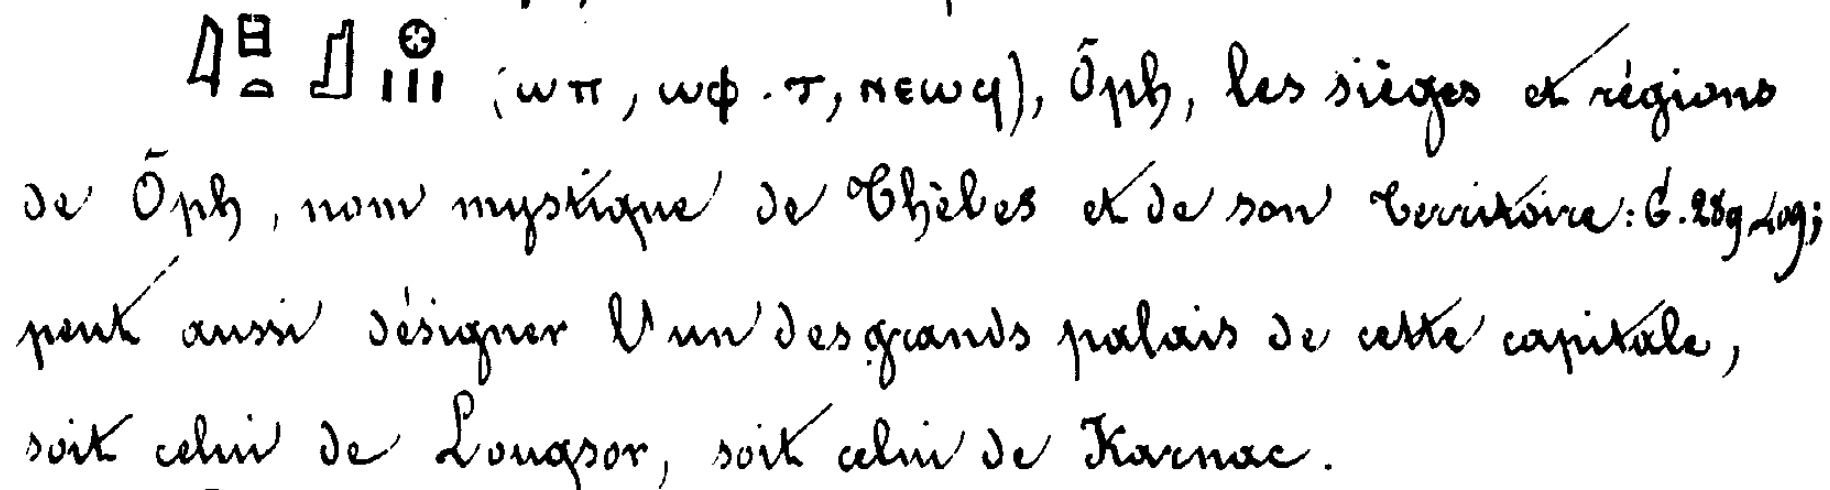 (ⲱⲡ, ⲱⲫ.ⲧ, ⲛⲉⲱϥ), Ōph, les sièges et régions
de Ōph, nom mystique de Thèbes et de son territoire: G. 289 409;
peut aussi désigner l'un des grands palais de cette capitale,
soit celui de Louqsor, soit celui de Karnac.